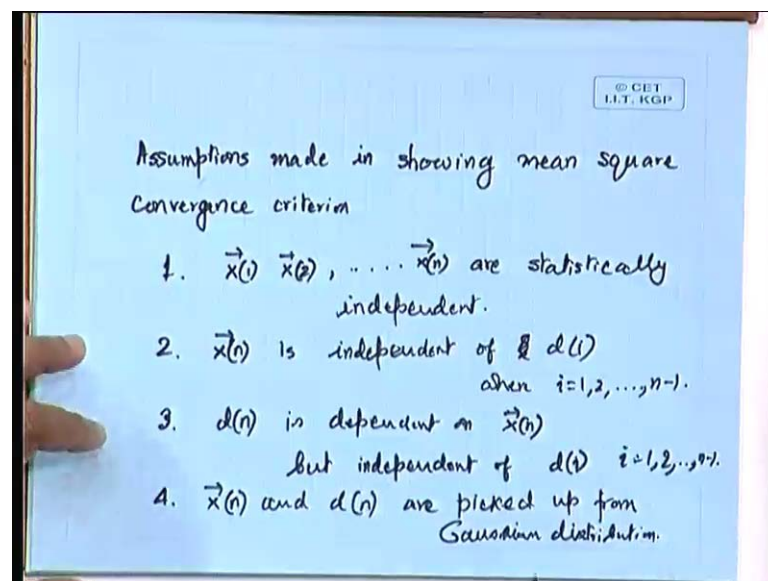 © CET
I.I.T. KGP
Assumptions made in showing mean square
Convergence criterion
1. x⃗(1) x⃗(2), ..... x⃗(n) are statistically
independent.
2. x⃗(n) is independent of d(i)
when i=1,2, ..., n-1.
3. d(n) is dependent on x⃗(n)
but independent of d(i) i=1,2,..,n-1.
4. x⃗(n) and d(n) are picked up from
Gaussian distribution.